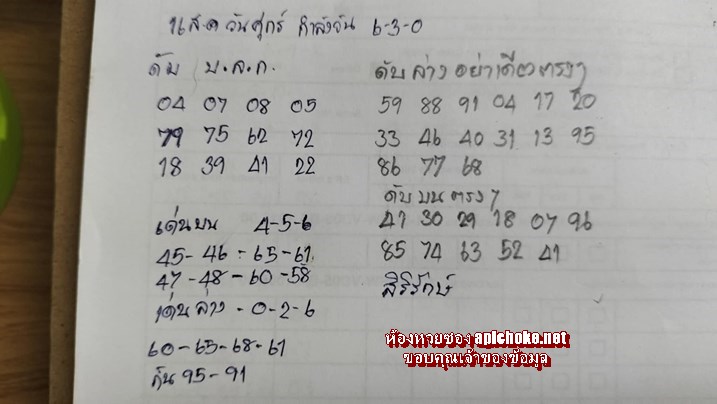 1 ส.ค วันศุกร์ กำลังวัน 6-3-0
ดับ บ.ล.ก.
04 07 08 05
79 75 62 72
18 39 41 22
เด่นบน 4-5-6
45-46-65-61
47-48-60-58
เด่นล่าง-0-2-6
60-65-68-61
กัน 95-91
ดับล่าง อย่าเดียวตรงๆ
59 88 91 04 17 20
33 46 40 31 13 95
86 77 68
ดับบนตรงๆ
47 30 29 18 07 96
85 74 63 52 41
สิริรักษ์
ห้องหวยซอง apichoke.net
ขอบคุณเจ้าของข้อมูล